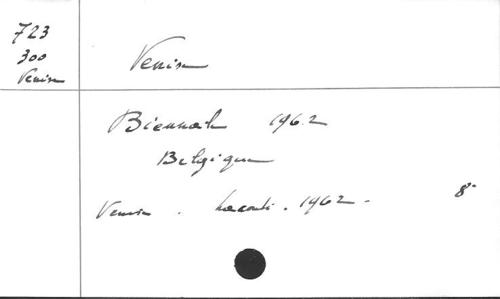 723
300
Venise
Venise
Biennale 1962
Belgique
Venise . . 1962 . 8°